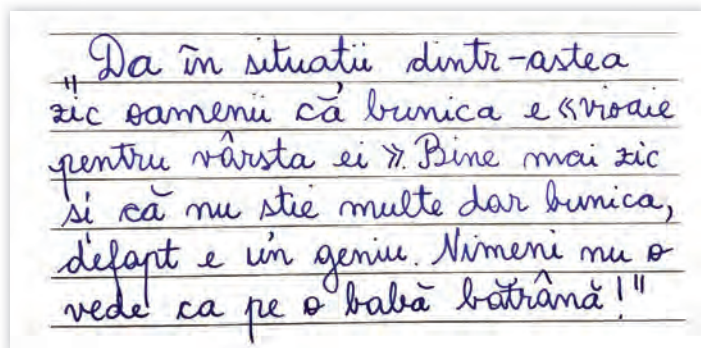 „Da în situatii dintr-astea
zic oamenii că bunica e «vioaie
pentru vârsta ei». Bine mai zic
si că nu stie multe dar bunica,
defapt e un geniu. Nimeni nu o
vede ca pe o babă bătrână!"